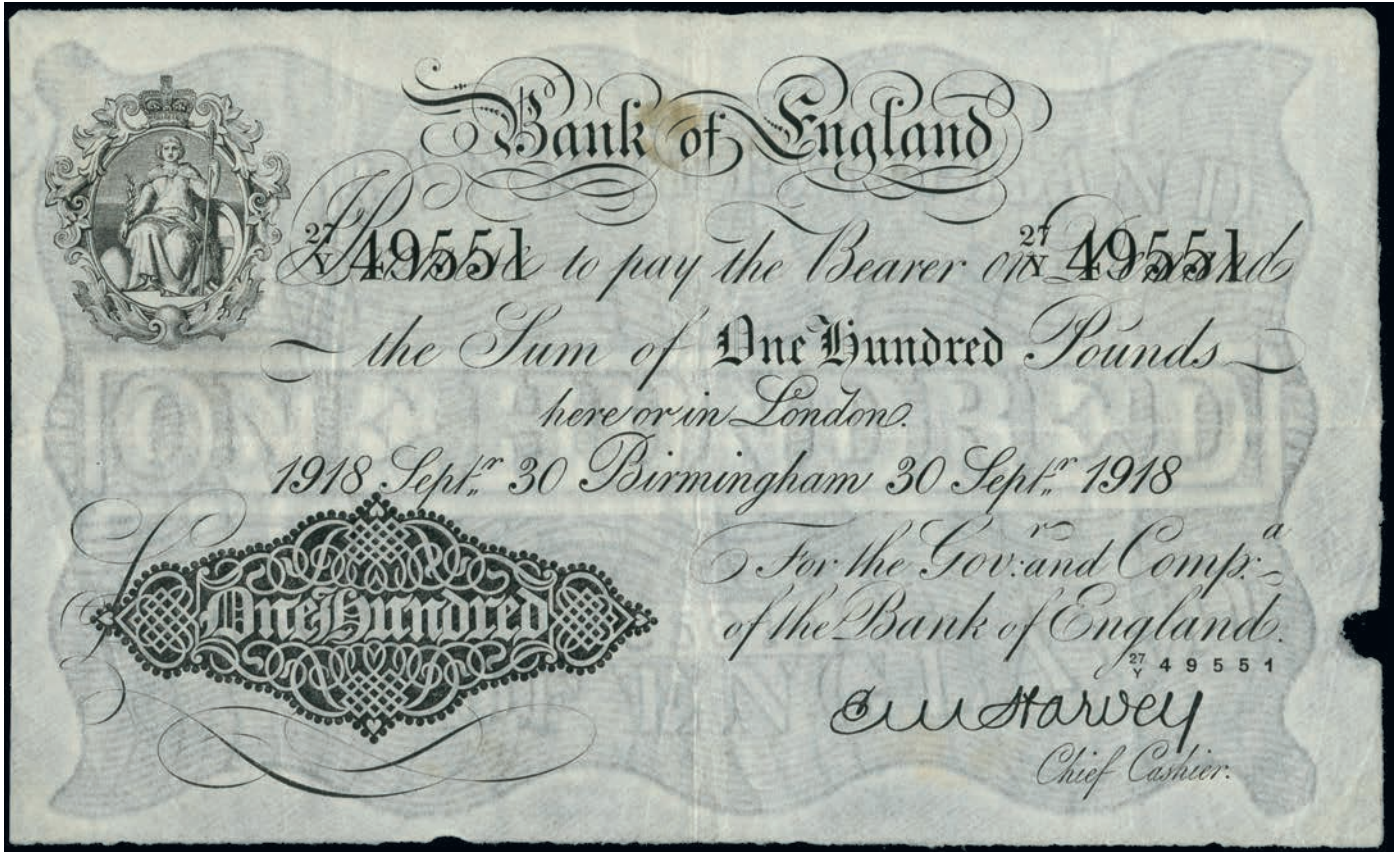 Bank of England
27/Y 49551 27/Y 49551
I Promise to pay the Bearer on Demand
the Sum of One Hundred Pounds
here or in London.
1918 Septr. 30 Birmingham 30 Septr. 1918
For the Govr: and Compa:
of the Bank of England.
27/Y 49551
E M Harvey
Chief Cashier.
£ One Hundred
ONE HUNDRED